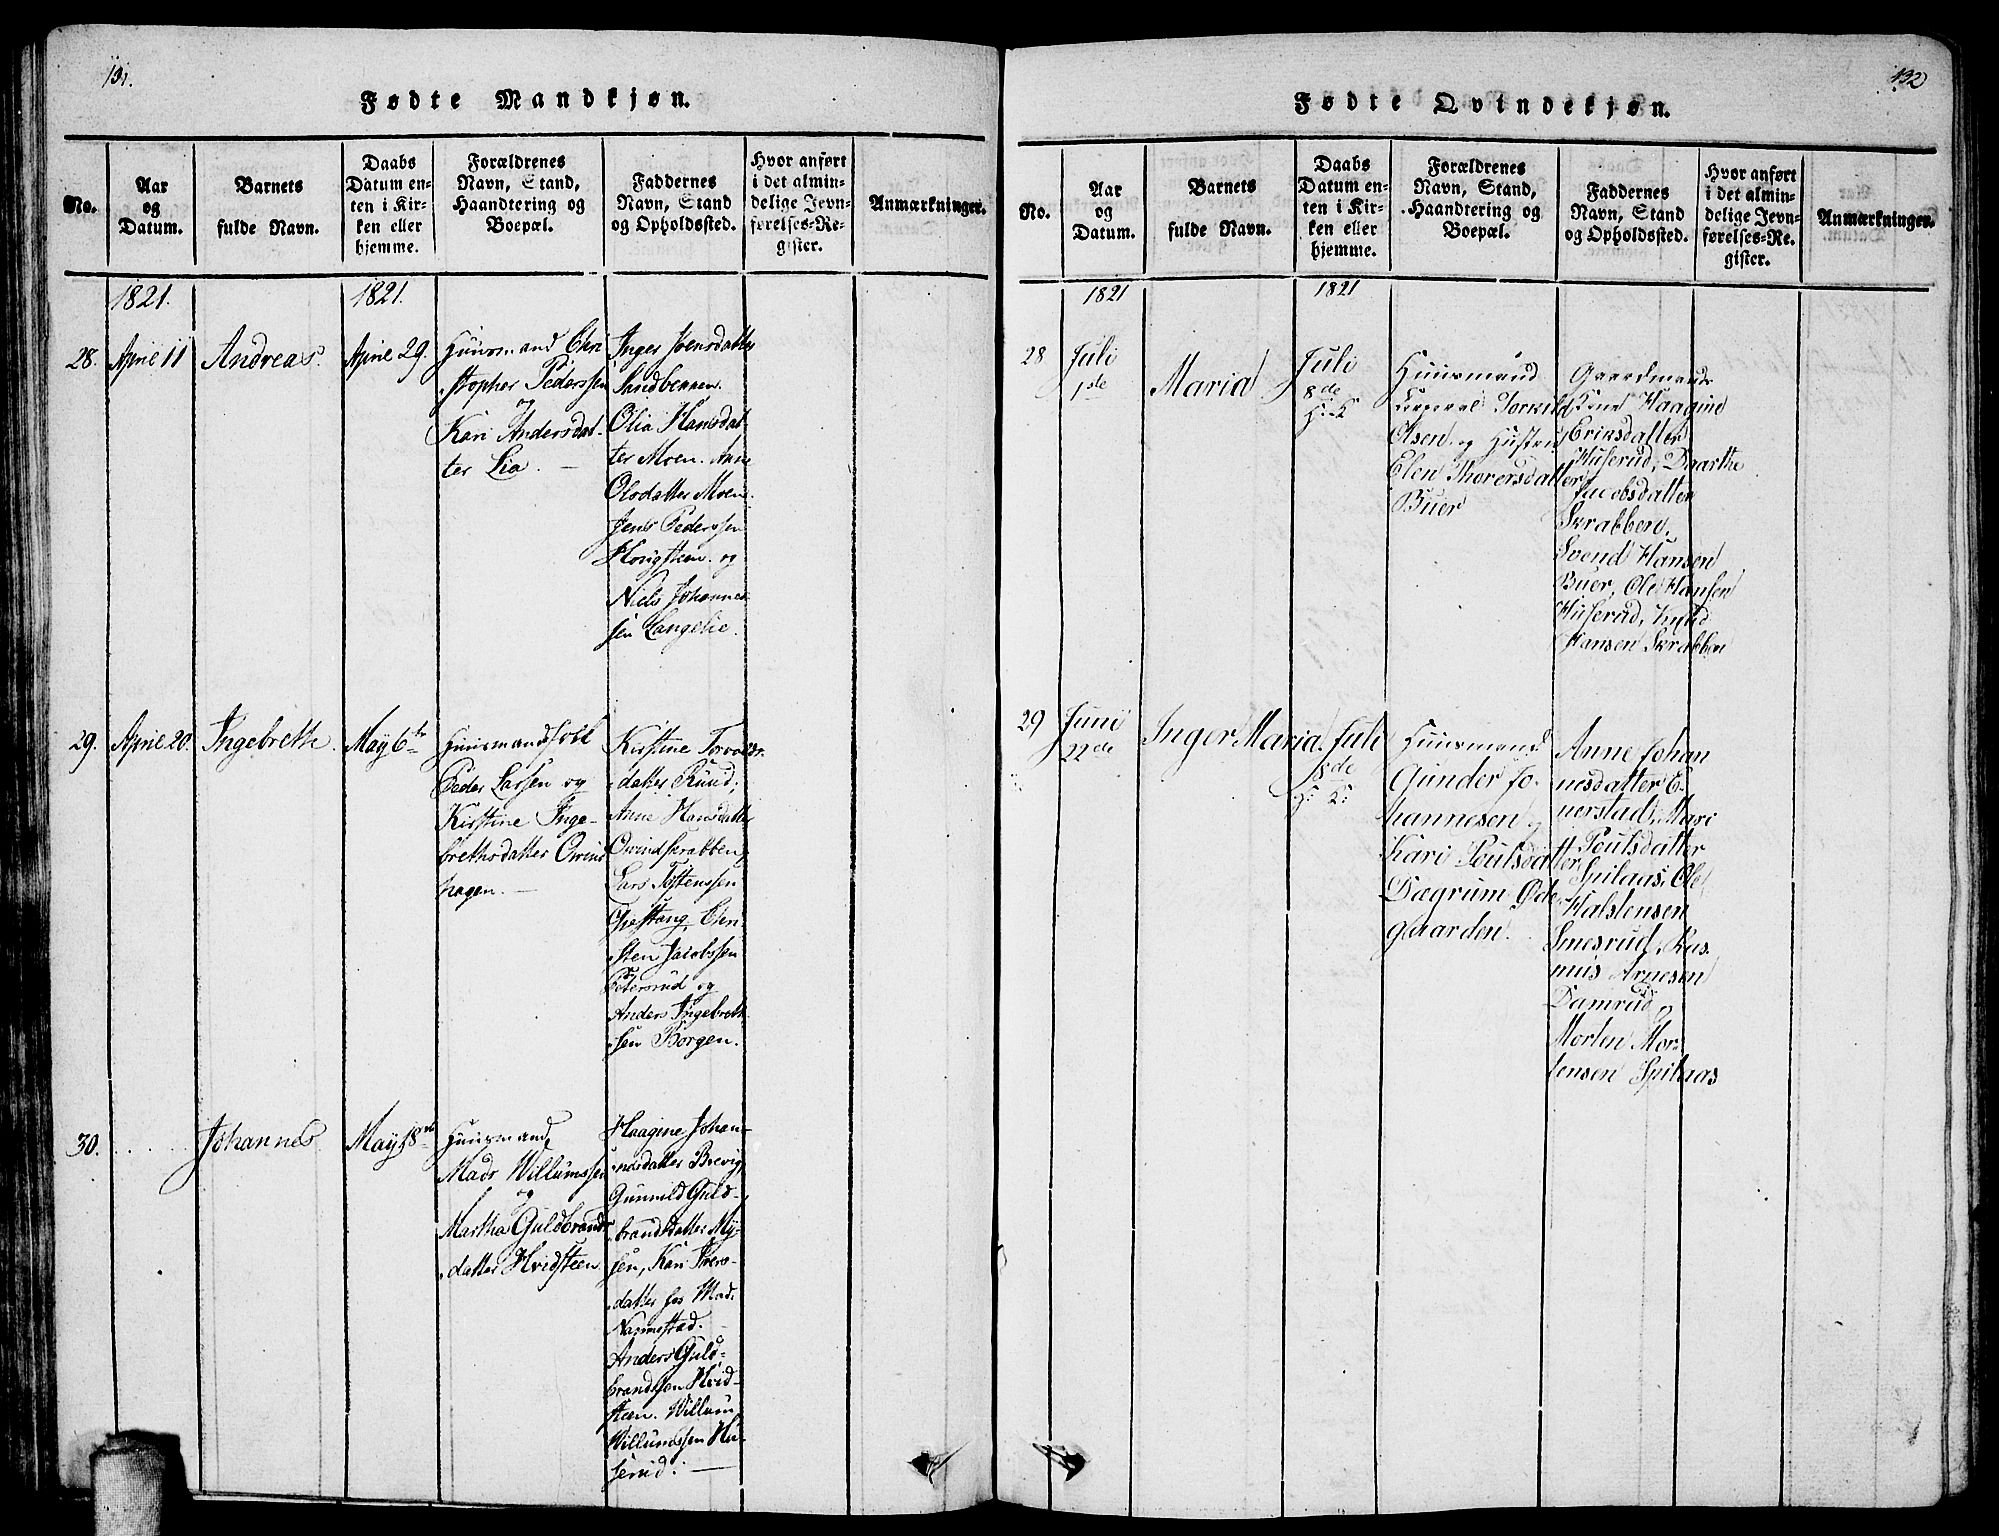 131.
Fødte Mandkjøn.
No.
Aar
og
Datum.
Barnets
fulde Navn.
Daabs
Datum en-
ten i Kir-
ken eller
hjemme.
Forældrenes
Navn, Stand,
Haandtering og
Boepæl.
Faddernes
Navn, Stand
og Opholdssted.
Hvor anført
i det almin-
delige Jevn-
førelses-Re-
gister.
Anmærkninger.
1821.
1821.
28.
April 11
Andreas.
April 29.
Huusmand Chri
stopher Pederssen
og
Kari Andersdat-
ter Lia.
Inger Joensdatter
Sandbekken.
Olia Hansdat
ter Moen. Anne
Olsdatter Moen.
Jens Pederssen
Horigsteen. og
Niels Johannes
sen Langelie.
29.
April 20.
Ingebreth.
May 6te
Huusmandsfolk
Peder Larssen og
Kirstine Inge-
brethsdatter Qvind
hagen.
Kirstine Torvalds
datter Ruud;
Anne Hansdatter
Qvindskrabben,
Lars Tostenssen
Opestang, Chri
sten Jacobssen
Petersrud og
Anders Ingebreth
sen Borgen.
30.
Johannes
May 18de
Huusmand
Mads Willumssen
og
Martha Guldbrands
datter Hvidsteen
Haagine Johan-
nesdatter Brevig,
Gunnild Guld-
brandsdatter My-
sen, Kari Ivers-
datter
Narmestad.
Anders Guld-
brandssen Hvid-
steen. Willum
Willumssen Hu-
serud.
132
Fødte Qvindekjøn.
No.
Aar
og
Datum.
Barnets
fulde Navn.
Daabs
Datum en-
ten i Kir-
ken eller
hjemme.
Forældrenes
Navn, Stand,
Haandtering og
Boepæl.
Faddernes
Navn, Stand
og Opholdssted.
Hvor anført
i det almin-
delige Jevn-
førelses-Re-
gister.
Anmærkninger.
1821
1821
28
Juli
1ste
Maria
Juli
8de
H: K
Huusmand
Corporal Torkild
Olsen og Hustru
Elen Thorersdatter
Buer
Gaardmands
Kone Haagine
Erinsdatter
Huserud, Maarthe
Jacobsdatter
Skrabben,
Svend Hansen
Buer, Ole Hansen
Huserud, Knud
Hansen Skrabben
29
Juni
22de
Inger Maria.
Juli
8de
H: K:
Huusmand
Gunder Jo-
hannesen og
Kari Poulsdatter
Dægrum Øde-
gaarden.
Anne Johan
nesdatter E-
nerstad, Mari
Poulsdatter
Spilaas, Ole
Halstensen
Smesrud, Ras
mus Arnesen
Damrud og
Morten Mor-
tensen Spilaas